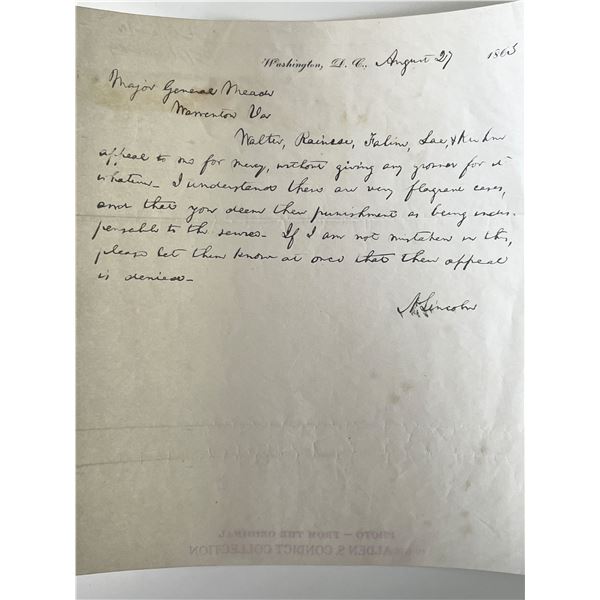 Washington, D. C., August 27 1863
Major General Meade
Warrenton Va
Walter, Rainese, Faline, Lae, & Kuhne
appeal to me for mercy, without giving any ground for it
whatever. I understand these are very flagrant cases,
and that you deem their punishment as being indis-
pensable to the service. If I am not mistaken in this,
please let them know at once that their appeal
is denied.
A. Lincoln
PHOTO — FROM THE ORIGINAL
ALDEN S. CONDICT COLLECTION